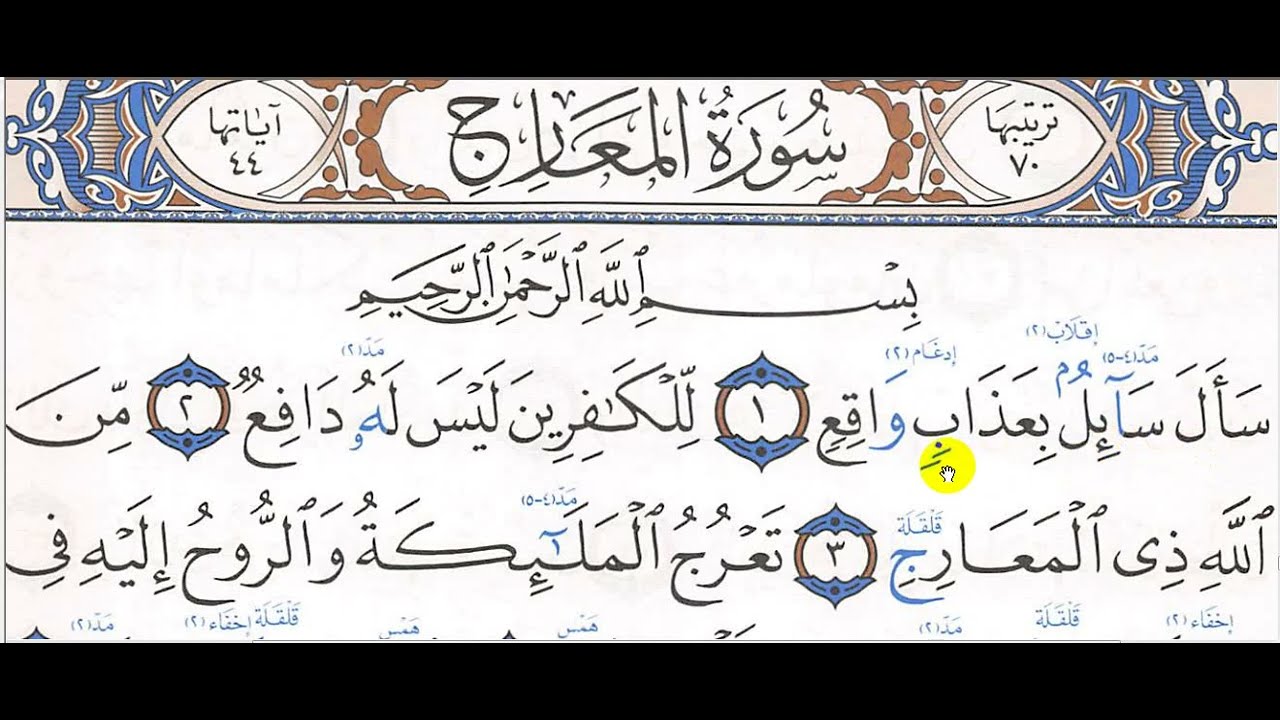 ترتيبها ٧٠ سُورَةُ المَعَارِجِ آيَاتها ٤٤
بِسْمِ ٱللَّهِ ٱلرَّحْمَٰنِ ٱلرَّحِيمِ
إقلَاب (٢)
مَدّ (٤-٥) إدغَام (٢) مَدّ (٢)
سَأَلَ سَآئِلُۢ بِعَذَابٖ وَاقِعٖ ١ لِّلۡكَٰفِرِينَ لَيۡسَ لَهُۥ دَافِعٞ ٢ مِّنَ
قَلقَلَة مَدّ (٤-٥)
ٱللَّهِ ذِي ٱلۡمَعَارِجِ ٣ تَعۡرُجُ ٱلۡمَلَٰٓئِكَةُ وَٱلرُّوحُ إِلَيۡهِ فِي
إخفَاء (٢) قَلقَلَة مَدّ (٢) هَمس هَمس قَلقَلَة إخفَاء (٢) مَدّ (٢)